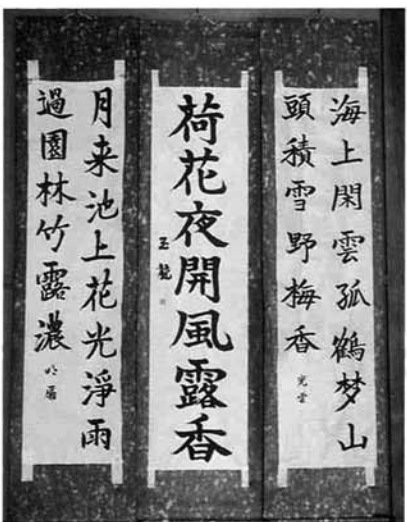 海上閑雲孤鶴梦山
頭積雪野梅香
光雲
荷花夜開風露香
玉龍
月来池上花光淨雨
過園林竹露濃